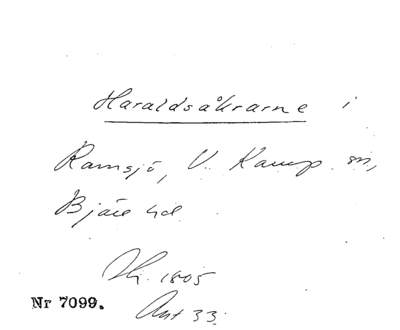 Haraldsåkrarne i
Ramsjö, V. Karup sn,
Bjäre hd
1805
Nr 7099.
Akt 33.